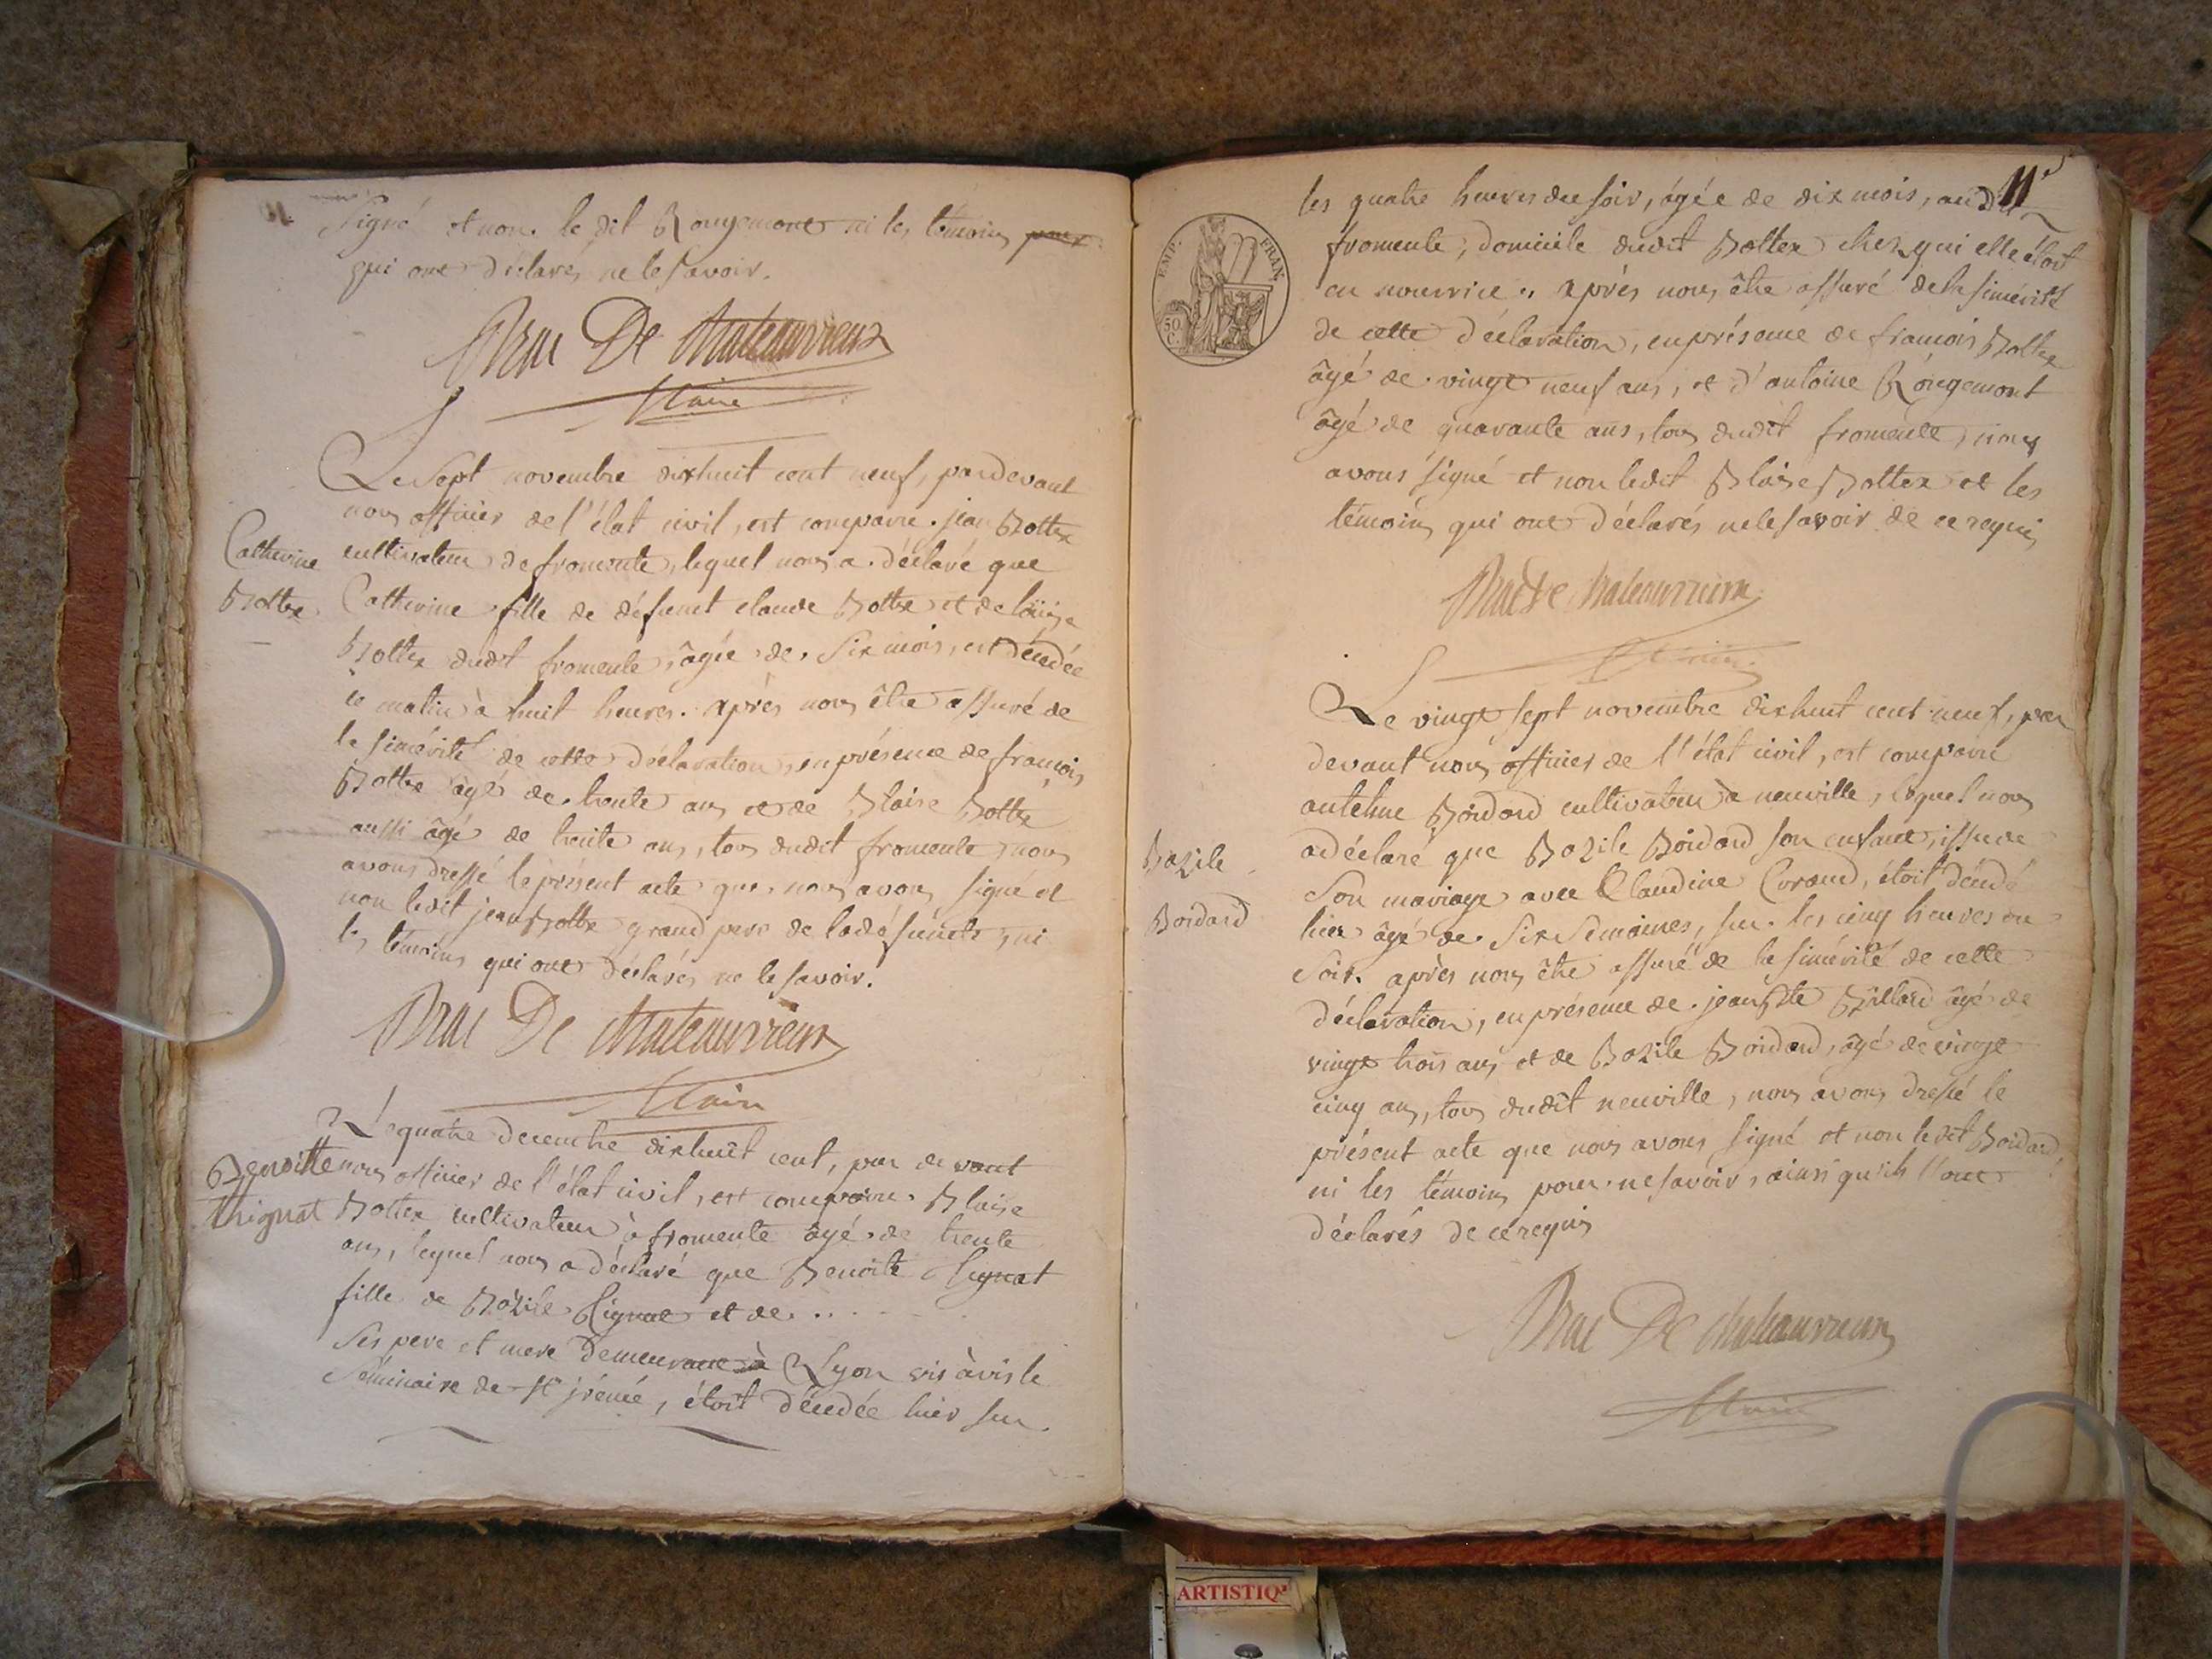 signé et non le dit Rougemont ni les témoins pour
qui ont déclarés ne le savoir.
Brac De Chateauvieux
Maire
Le sept novembre dixhuit cent neuf, pardevant
nous officier de l'état civil, est comparu jean Bottex
cultivateur de fromente, lequel nous a déclaré que
Catherine
Bottex
Catherine fille de défunct claude Bottex et de loüise
Bottex dudit fromente, âgée de six mois, est décédée
ce matin à huit heures. après nous être assuré de
la sincérité de cette déclaration, en présence de françois
Bottex âgé de trente ans et de Blaise Bottex
aussi âgé de trente ans, tous dudit fromente, nous
avons dressé le présent acte que nous avons signé et
non ledit jean Bottex grand pere de la défuncte, ni
les témoins qui ont déclarés ne le savoir.
Brac De Chateauvieux
Maire
Le quatre decembre dixhuit cent, par devant
Benoitte
thignat
nous officier de l'état civil, est comparu Blaise
Bottex cultivateur à fromente âgé de trente
ans, lequel nous a déclaré que Benoite
fille de Bazile et de . . .
Ses pere et mere demeurant à Lyon vis à vis le
Séminaire de St jrénée, étoit décédée hier sur
11e
les quatre heures du soir, âgée de dix mois, audit
fromente, domicile dudit Bottex chez qui elle étoit
en nourrice. après nous être assuré de la sincérité
de cette déclaration, en présence de françois Bottex
âgé de vingt neuf ans, et d'antoine Rougemont
âgé de quarante ans, tous dudit fromente, nous
avons signé et non ledit Blaise Bottex et les
témoins qui ont déclarés ne le savoir de ce requis
Brac De Chateauvieux
Maire
EMP. FRAN.
50 C.
Le vingt sept novembre dixhuit cent neuf, par
devant nous officier de l'état civil, est comparu
antelme Boidard cultivateur à neuville, lequel nous
Bazile
Boidard
a déclaré que Bazile Boidard son enfant, issu de
Son mariage avec Claudine Curaud, étoit décédé
hier âgé de Six Semaines, sur les cinq heures du
Soir. après nous être assuré de la sincérité de cette
déclaration, en présence de jean Bte âgé de
vingt trois ans et de Bazile Boidard, âgé de vingt
cinq ans, tous dudit neuville, nous avons dressé le
présent acte que nous avons signé et non ledit Boidard,
ni les témoins pour ne savoir, ainsi qu'ils l'ont
déclarés de ce requis
Brac De Chateauvieux
Maire
ARTISTIQ